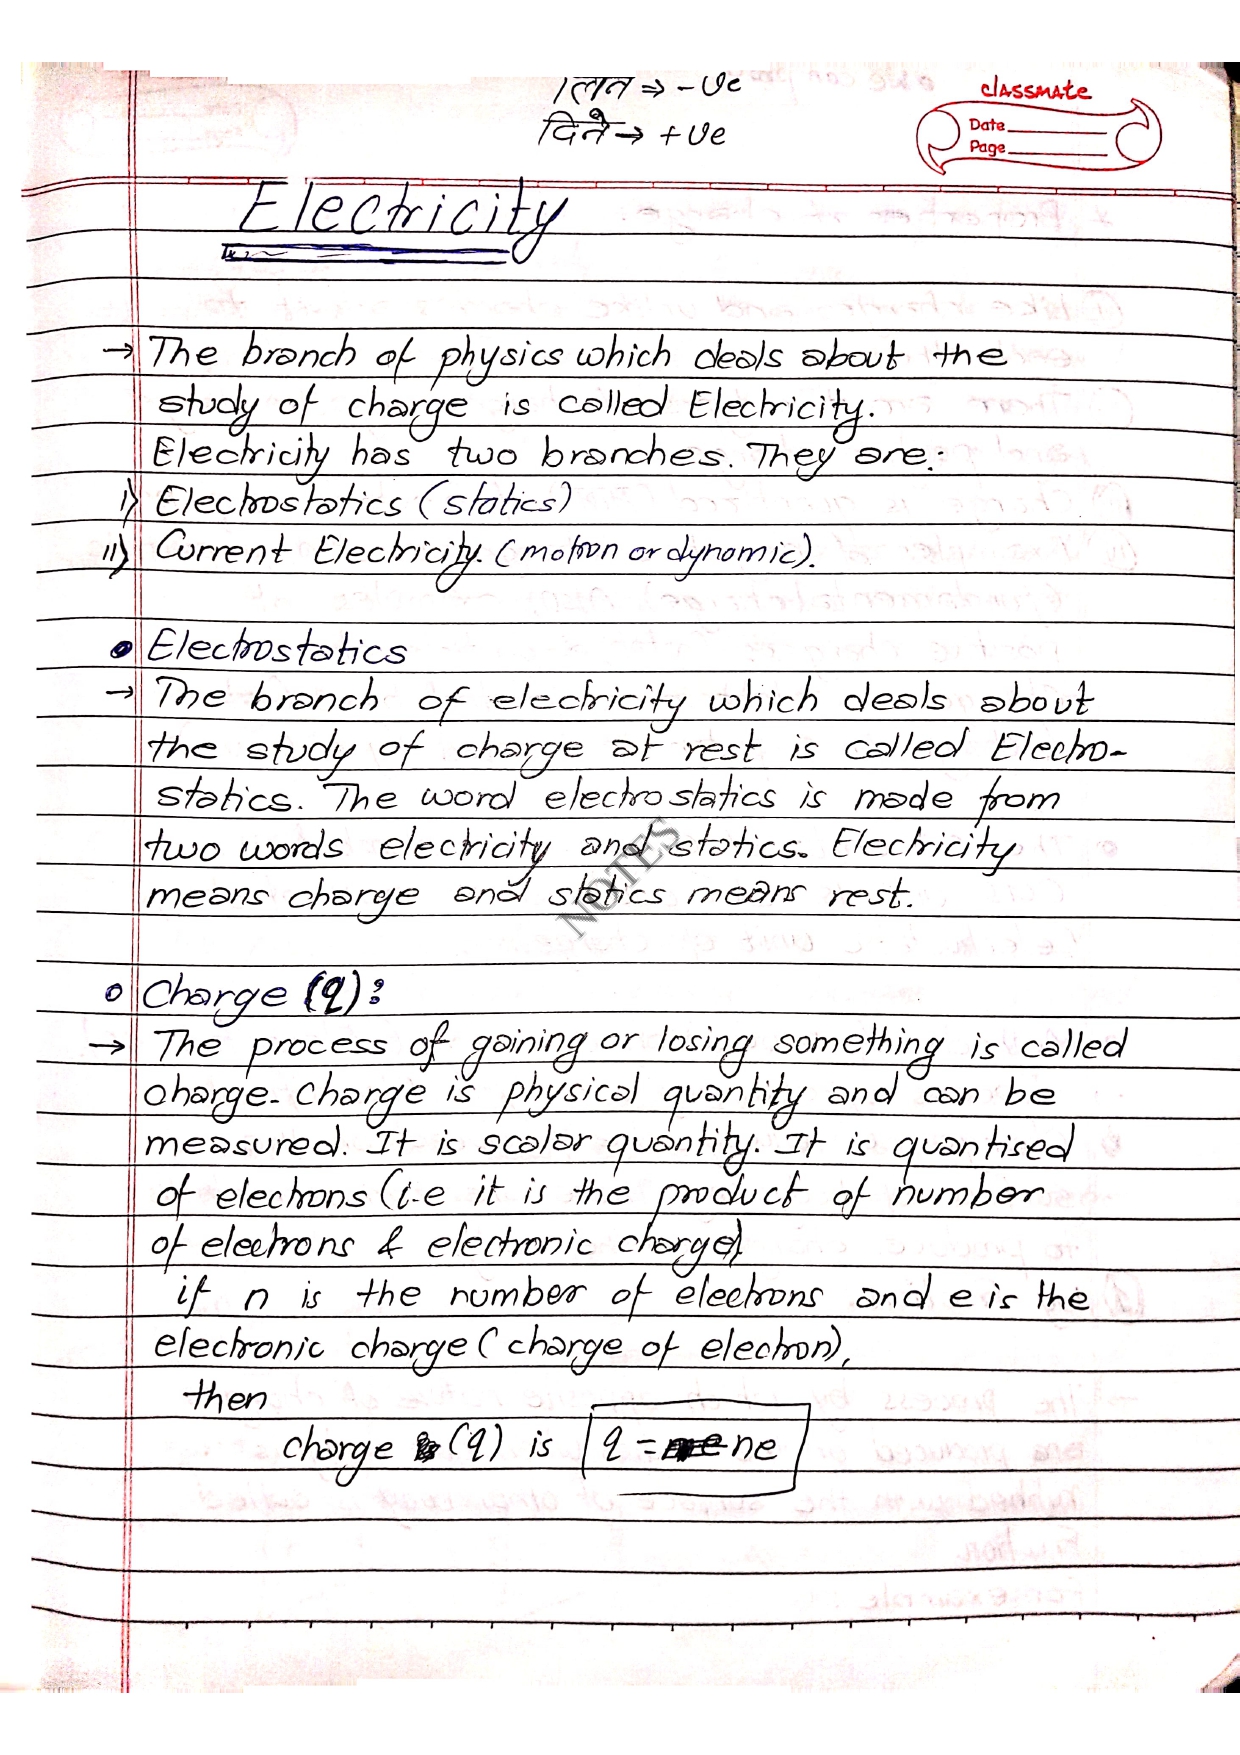 लिने ⇒ -ve
दिने → +ve
classmate
Date
Page
Electricity
→ The branch of physics which deals about the
study of charge is called Electricity.
Electricity has two branches. They are:
i) Electrostatics (statics)
ii) Current Electricity. (motion or dynamic).
• Electrostatics
→ The branch of electricity which deals about
the study of charge at rest is called Electro-
statics. The word electrostatics is made from
two words electricity and statics. Electricity
means charge and statics means rest.
NOTES
• Charge (q):
→ The process of gaining or losing something is called
charge. Charge is physical quantity and can be
measured. It is scalar quantity. It is quantised
of electrons (i.e it is the product of number
of electrons & electronic charge)
if n is the number of electrons and e is the
electronic charge (charge of electron),
then
charge (q) is q = ne